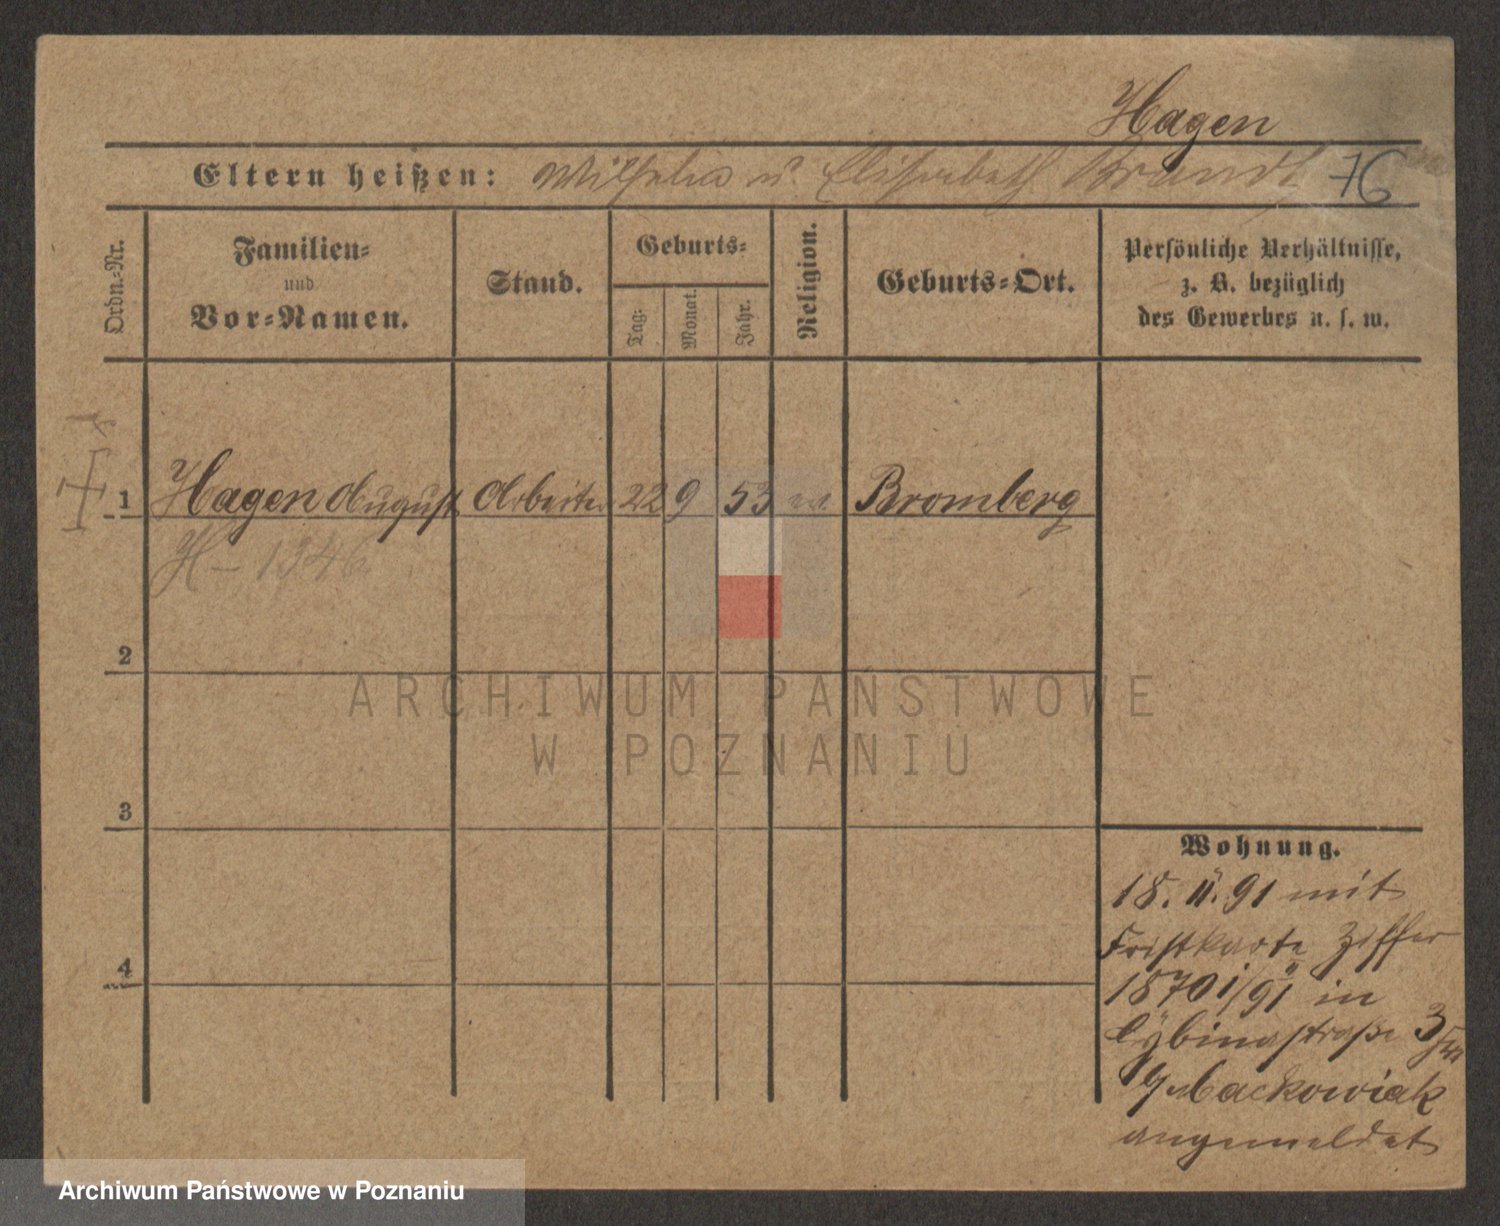 Hagen
Eltern heißen: Wilhelm u. Elisabeth Brandt 76
Ordn.-Nr.
Familien-
und
Vor-Namen.
Stand.
Geburts-
Tag:
Monat.
Jahr.
Religion.
Geburts-Ort.
Persönliche Verhältnisse,
z. B. bezüglich
des Gewerbes u. s. w.
1 Hagen August Arbeiter 22 9 53 ev. Bromberg
H - 1346
2
3
4
ARCHIWUM PAŃSTWOWE
W POZNANIU
Wohnung.
18. 11. 91 mit
Fristkarte Ziffer
18701/91 in
Cybinastraße 3
Mackowiak
angemeldet
Archiwum Państwowe w Poznaniu